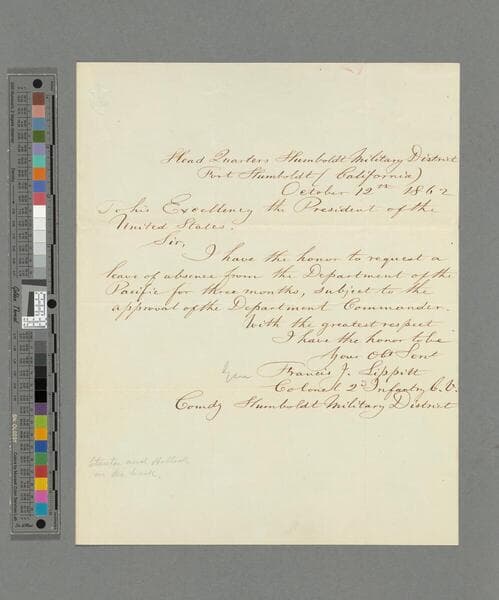 Head Quarters Humboldt Military District
Fort Humboldt (California)
October 12th 1862
To his Excellency the President of the
United States.
Sir,
I have the honor to request a
leave of absence from the Department of the
Pacific for three months, subject to the
approval of the Department Commander.
With the greatest respect
I have the honor to be
Your Obt Servt
Gen
Francis J. Lippitt
Colonel 2d Infantry C. V.
Comdg Humboldt Military District
Stanton and Halleck
on the back.